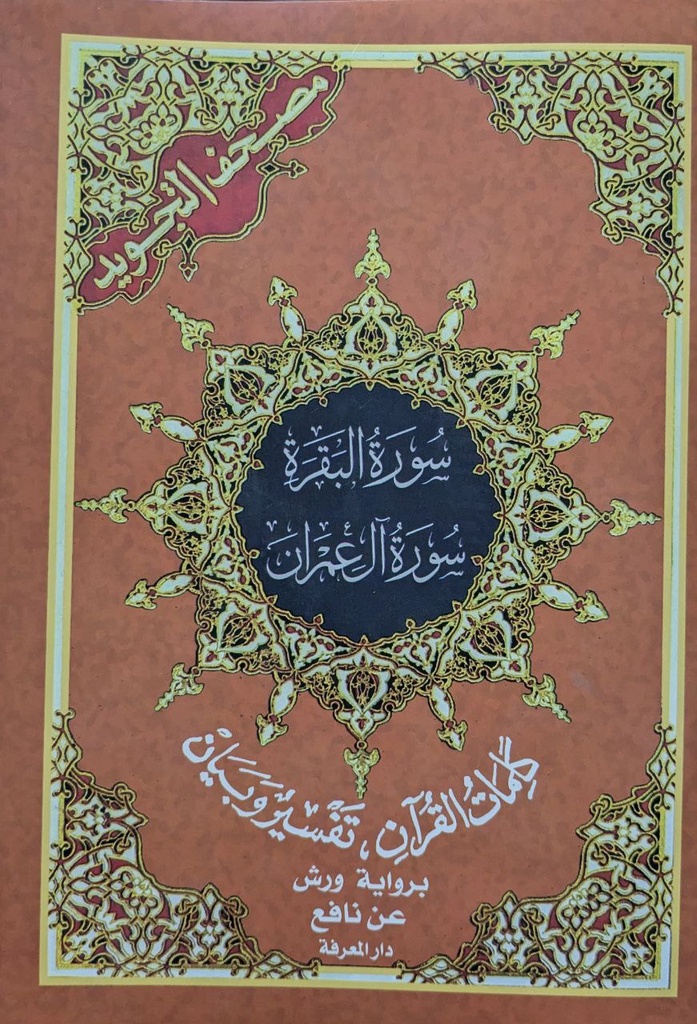 مصحف التجويد
سُورَةُ البَقَرَةِ
سُورَةُ آلِ عِمْرَانَ
كَلِمَاتُ القُرْآنِ، تَفْسِيرٌ وَبَيَانٌ
برواية ورش
عن نافع
دار المعرفة